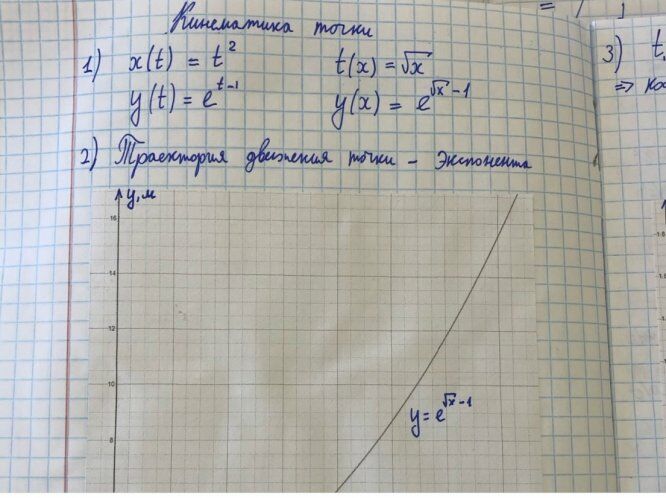 Кинематика точки
1) x(t) = t² t(x) = √x
y(t) = e^(t-1) y(x) = e^(√x -1)
2) Траектория движения точки – Экспонента
y, м
16
14
12
10
8
y = e^(√x -1)
3) t,
⇒